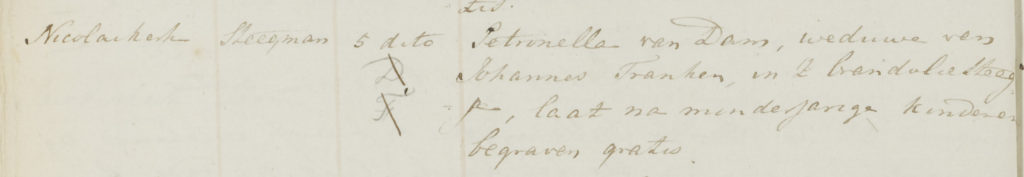 tis.
Nicolaikerk Steegman 5 dito Petronella van Dam, weduwe van
D. Johannes Franken, in 't Brandolie Steeg
F , laat na minderjarige kinderen
begraven gratis.